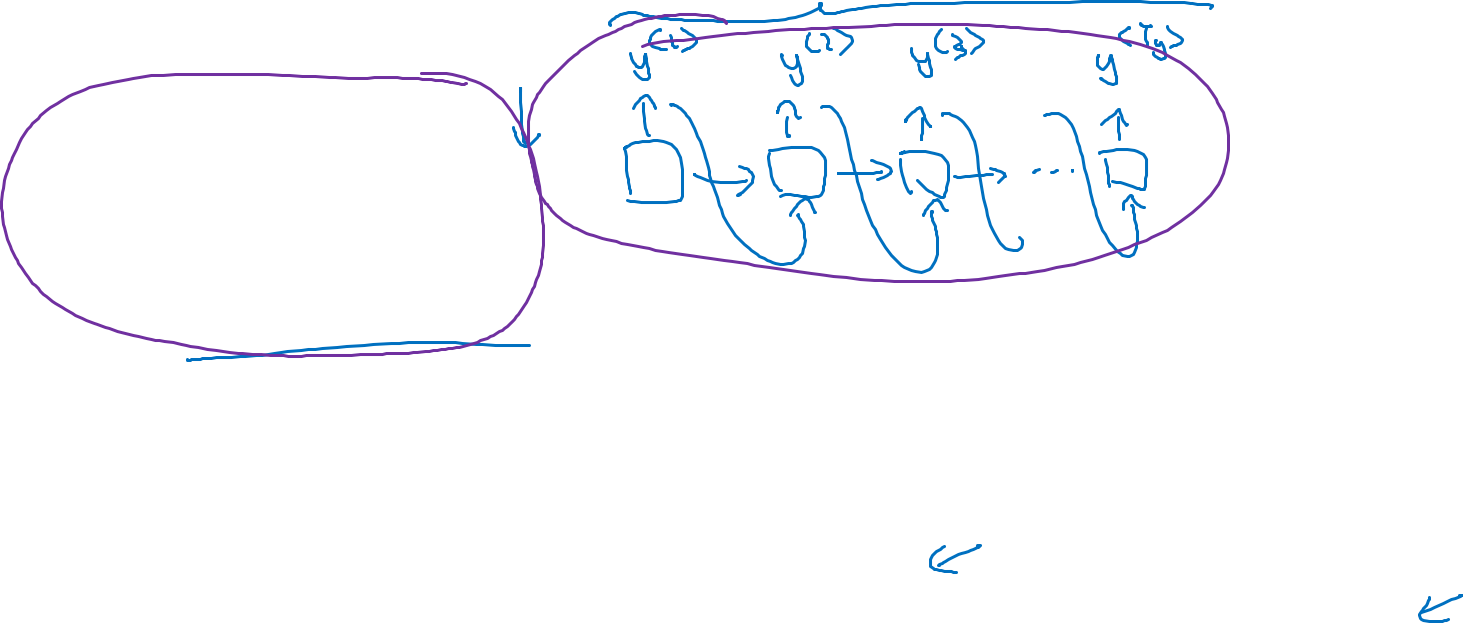 y<1> y<2> y<3> y<Ty>
....